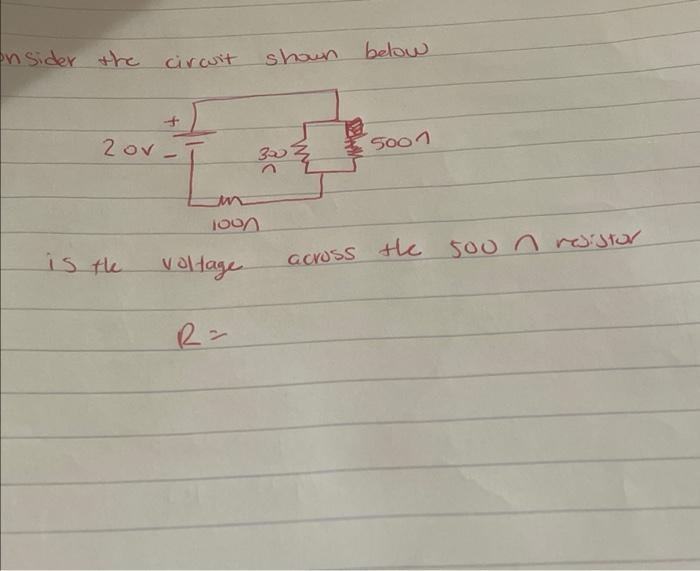 nsider the circuit shown below
+
20v
-
300
Ω
500Ω
100Ω
is the voltage across the 500 Ω resistor
R=